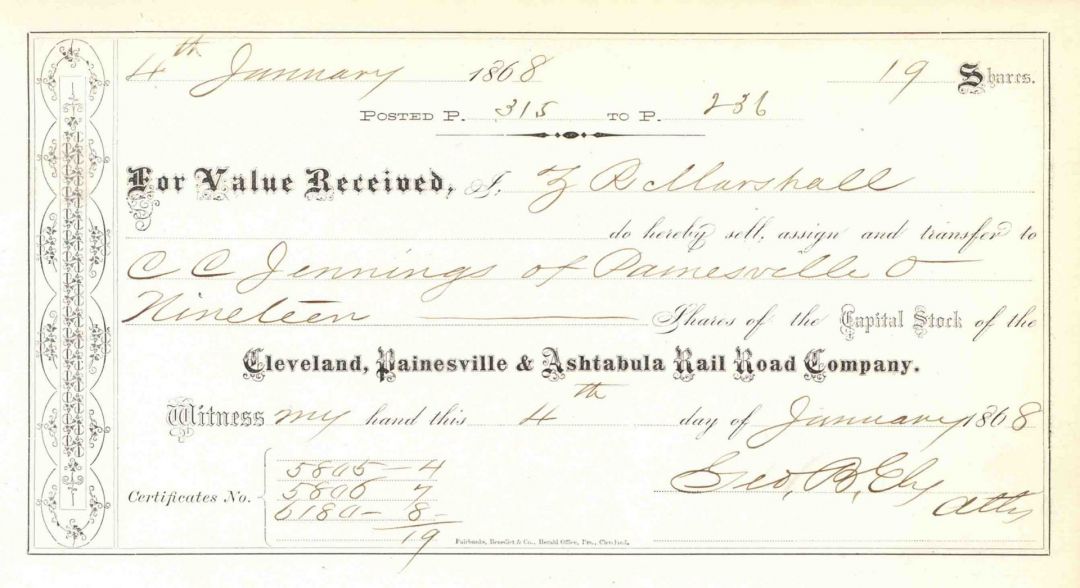 4th January 1868 19 Shares.
POSTED P. 315 TO P. 236
For Value Received, I, Z R Marshall
do hereby sell, assign and transfer to
C C Jennings of Painesville O
Nineteen Shares of the Capital Stock of the
Cleveland, Painesville & Ashtabula Rail Road Company.
Witness my hand this 4th day of January 1868
5805 – 4
Certificates No. 5806 7
6180 – 8 –
19
Geo. B. Ely
Atty
Fairbanks, Benedict & Co., Herald Office, Prs., Cleveland.